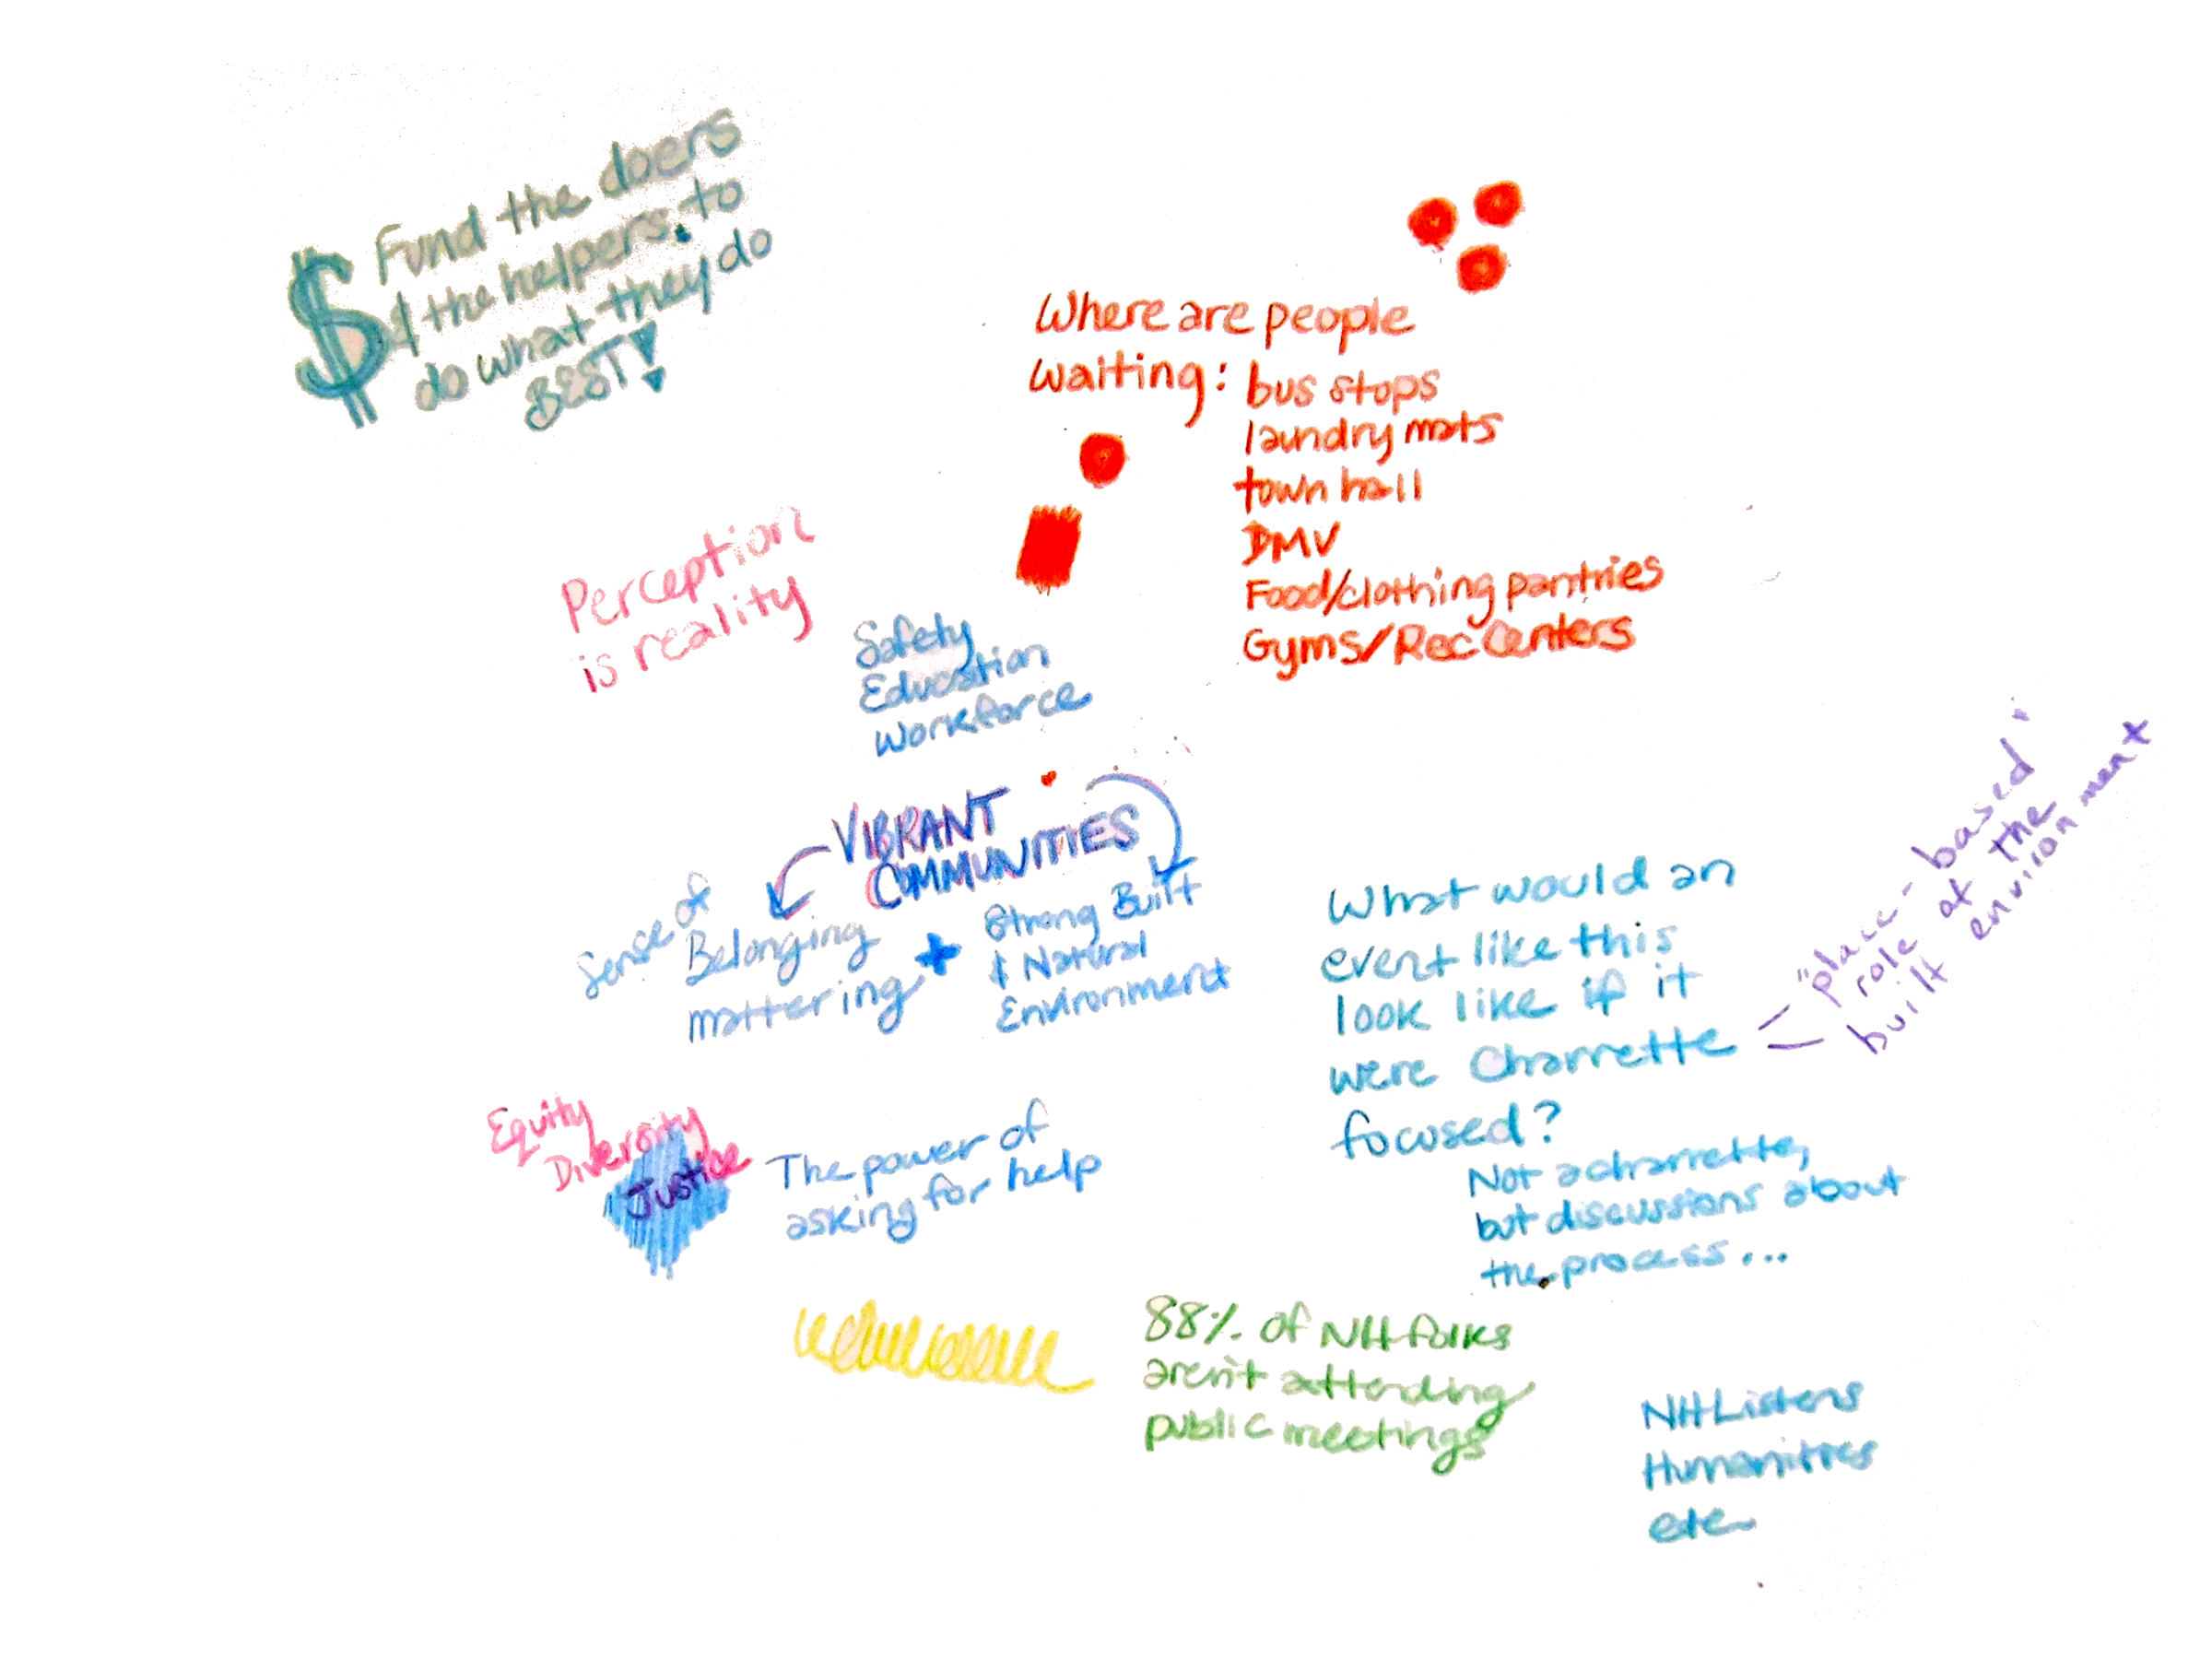 Fund the doers
$ & the helpers to
do what they do
BEST!
Where are people
waiting: bus stops
laundry mats
town hall
DMV
Food/clothing pantries
Gyms/Rec Centers
Perception
is reality
Safety
Education
Workforce
VIBRANT
COMMUNITIES
Sense of
Belonging
mattering +
Strong Built
& Natural
Environment
What would an
event like this
look like if it
were Charrette
focused?
"place-based"
role of the
built environment
Not a charrette,
but discussions about
the process...
Equity
Diversity
Justice
The power of
asking for help
88% of NH folks
aren't attending
public meetings
NH Listens
Humanities
etc